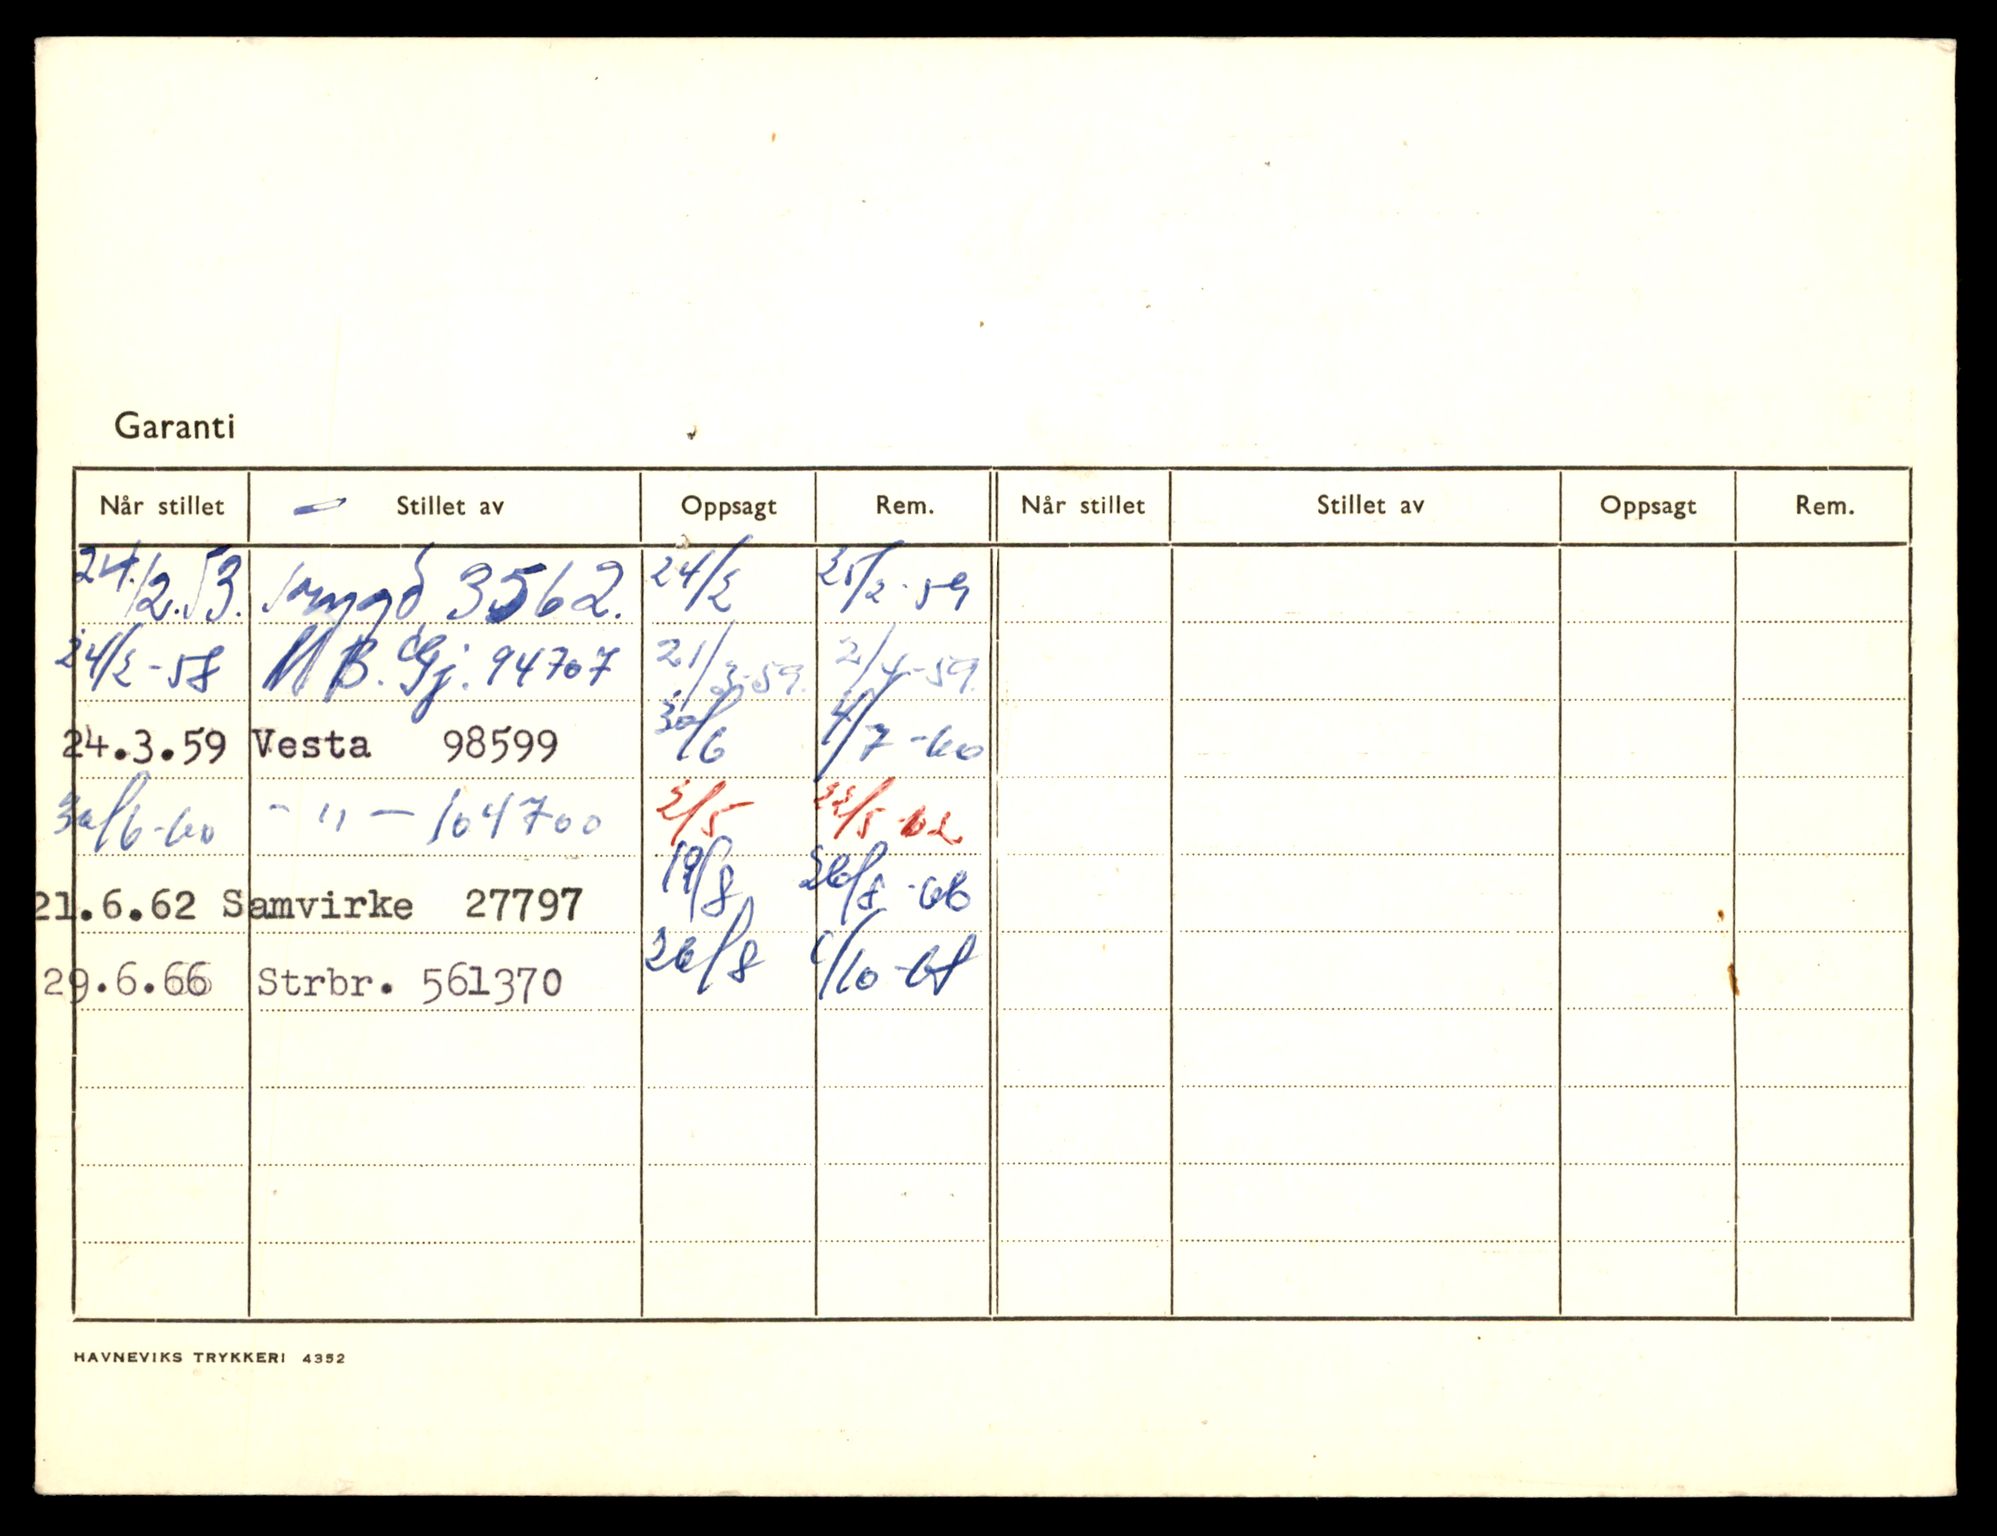 Garanti
Når stillet Stillet av Oppsagt Rem. Når stillet Stillet av Oppsagt Rem.
24/2.53. Trygd 3562. 24/2 25/2-59
24/2-58 N B. Gj. 94707 21/3-59. 2/4-59.
24.3.59 Vesta 98599 30/6 4/7-60
30/6-60 - " - 104700 2/5 22/5-62
21.6.62 Samvirke 27797 19/8 26/8-66
29.6.66 Strbr. 561370 26/8 1/10-68
HAVNEVIKS TRYKKERI 4352